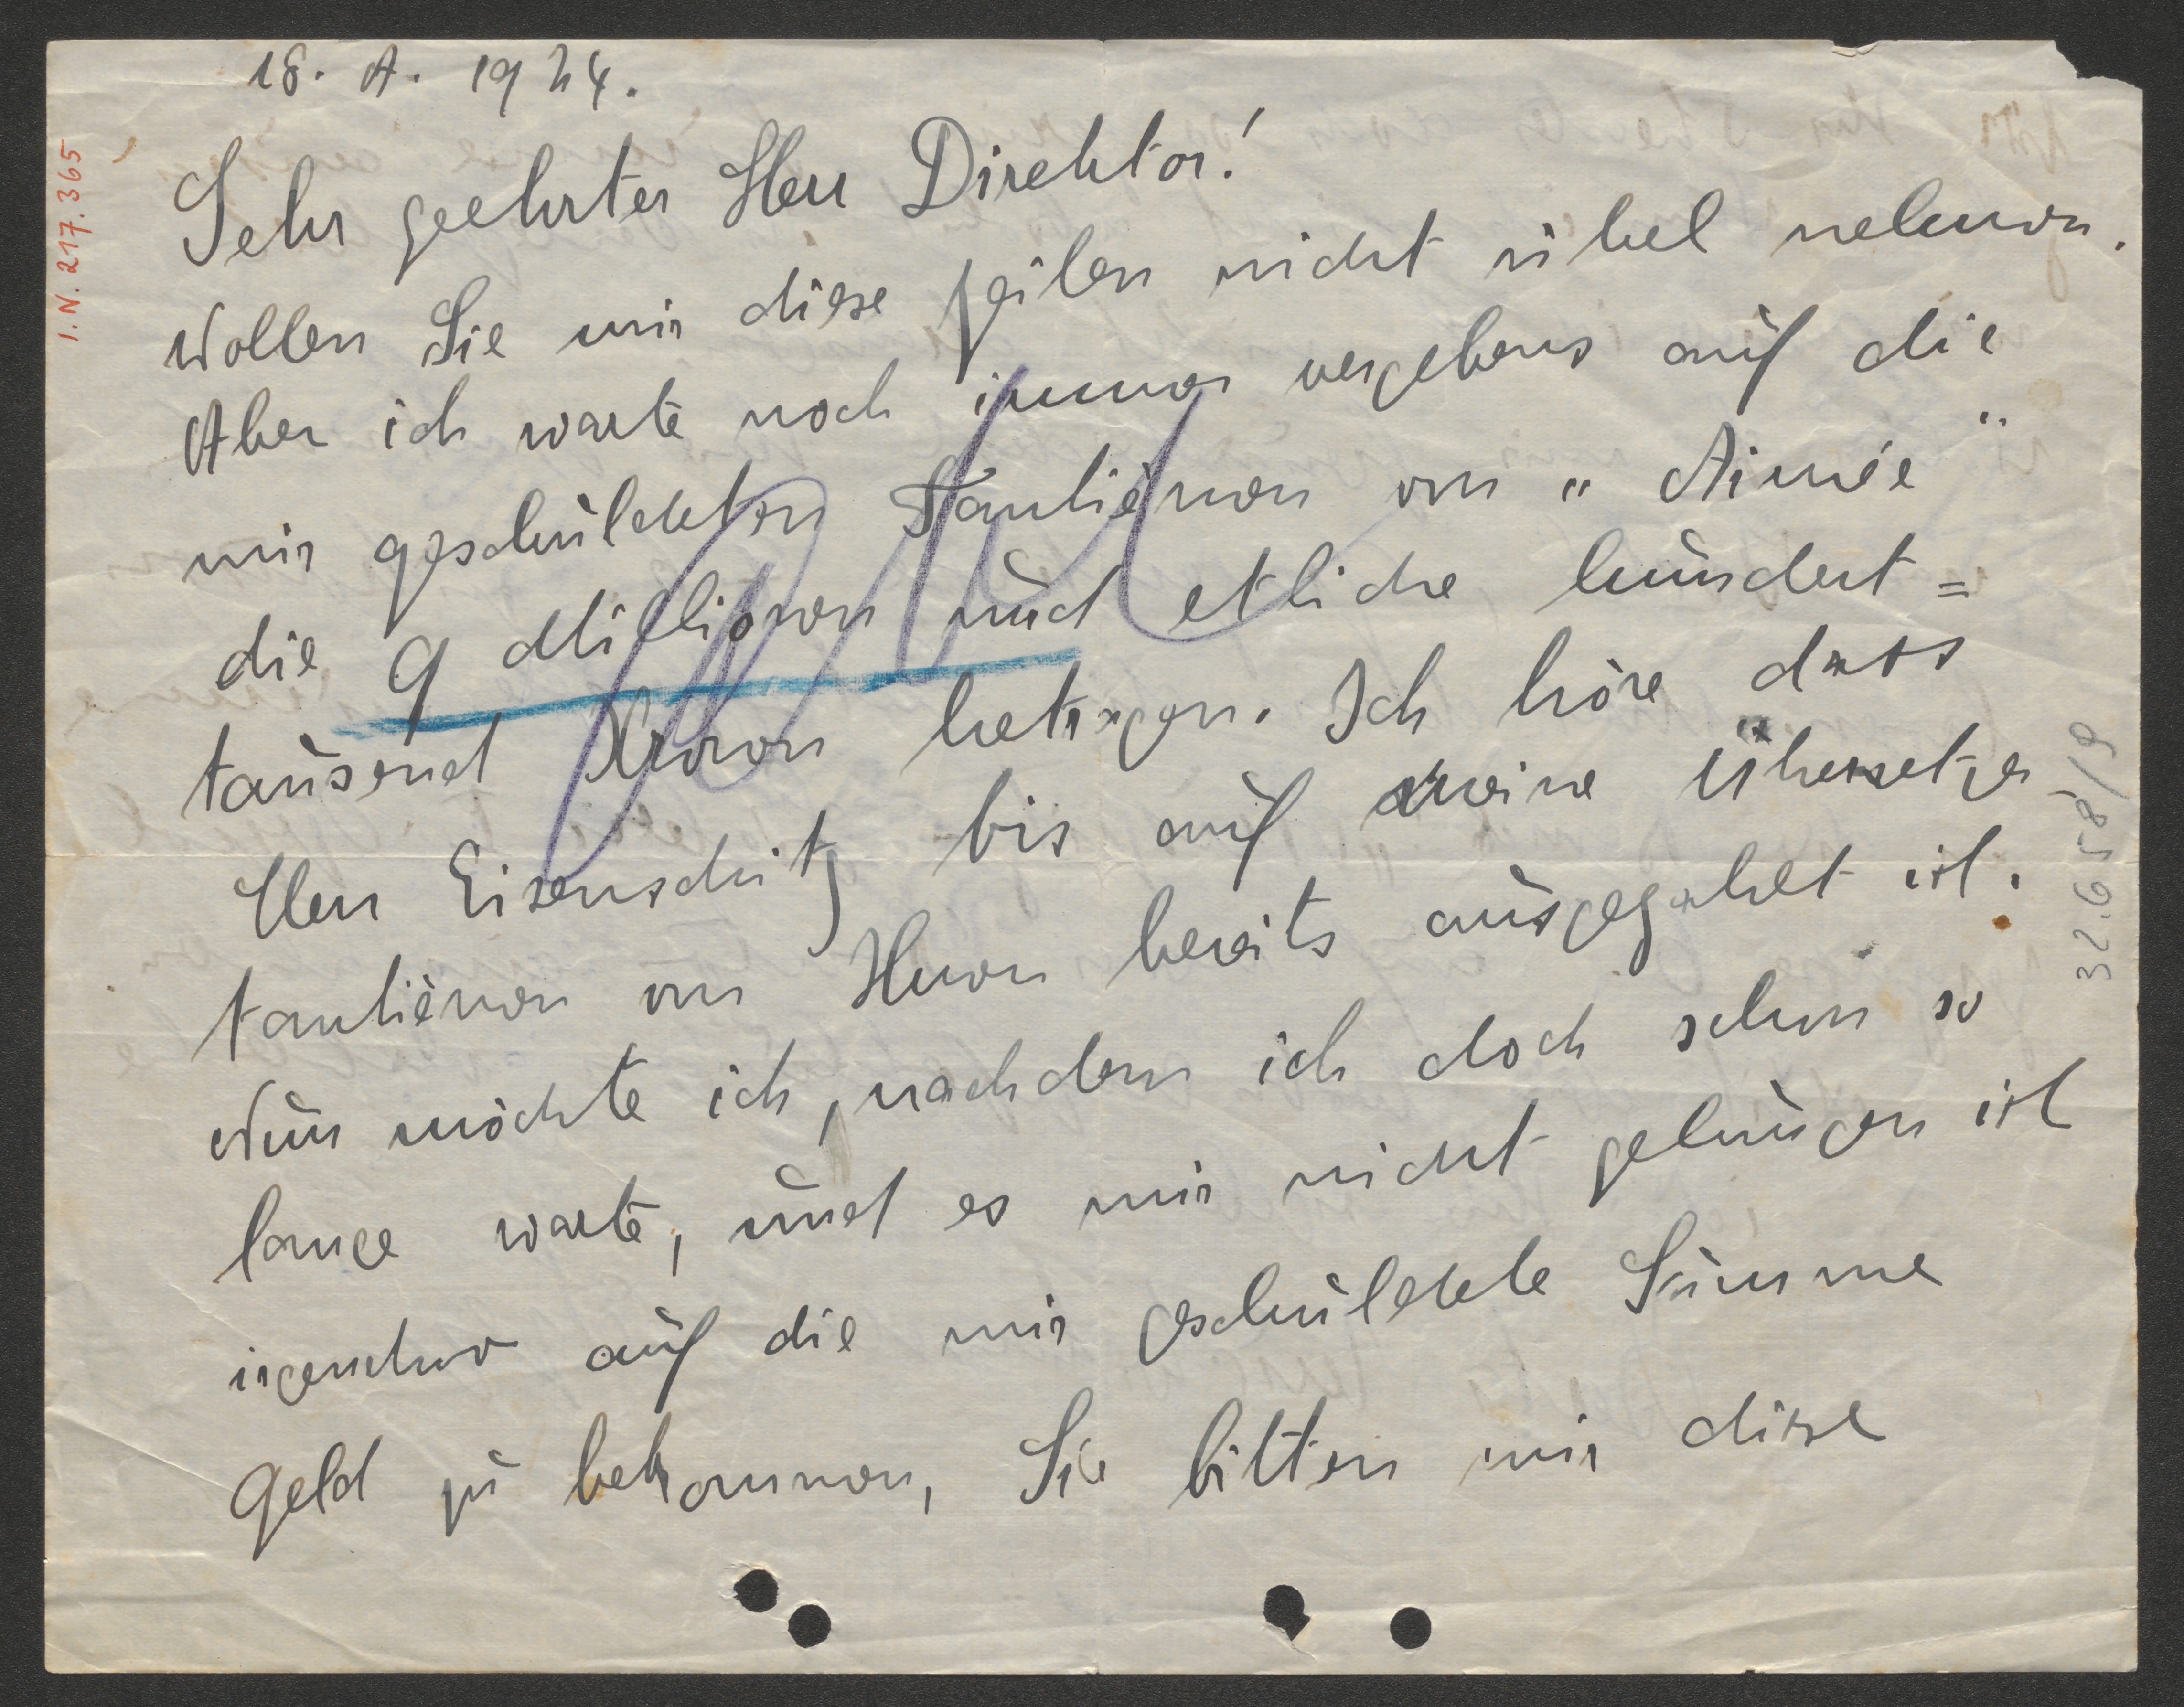 18. A. 1924.
Sehr geehrter Herr Direktor!
Wollen Sie mir diese Zeilen nicht übel nehmen.
Aber ich warte noch immer vergebens auf die
mir geschuldeten Tantièmen von „Aimée“
die 9 Millionen und etliche hundert=
tausend Kronen betragen. Ich höre dass
Herr Eisenschitz bis auf meine Übersetzer
tantièmen von Ihnen bereits ausgezahlt ist.
Nun möchte ich, nachdem ich doch schon so
lange warte, und es mir nicht gelungen ist
irgendwo auf die mir geschuldete Summe
Geld zu bekommen, Sie bitten mir diese
I.N. 217.365
32.658/9